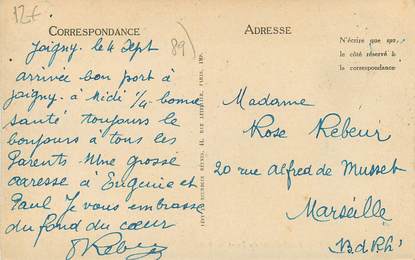 12€
CORRESPONDANCE
89)
Joigny le 4 Sept
arrivée bon port à
Joigny. à Midi 1/4. bonne
santé toujours le
bonjours à tous les
Parents. Une grosse
caresse à Eugenie et
Paul Je vous embrasse
du fond du cœur
Rebeur
ADRESSE
N'écrire que sur
le côté réservé à
la correspondance
Madame
Rose Rebeur
20 rue alfred de Musset
Marseille
B.d.Rh.